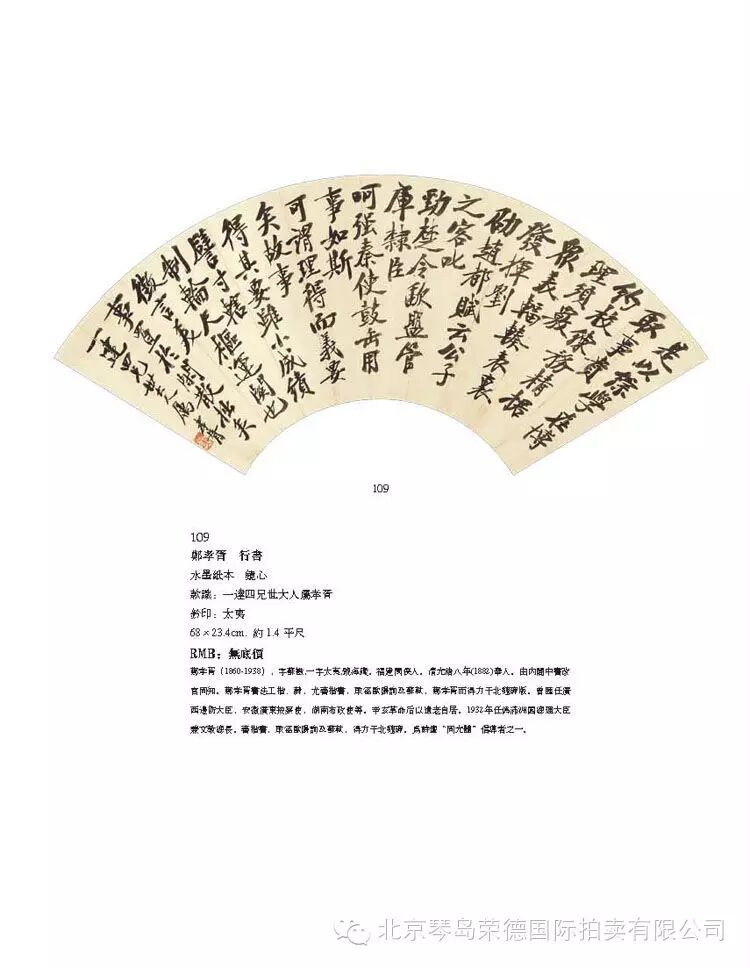 是以綜學在博
取事貴
約校練務精捃
理須覈
衆美輻輳表裏
發揮劉
劭趙都賦云公子
之客叱
勁楚令歃盟管
庫隸臣
呵强秦使鼓缶用
事如斯
可謂理得而義要
矣故事
得其要雖小成績
譬寸轄
制輪尺樞運關也
微言美
事置於閑散
一達四兄世大人屬 孝胥
109
109
鄭孝胥 行書
水墨紙本 鏡心
款識：一達四兄世大人屬孝胥
鈐印：太夷
68×23.4cm. 約1.4平尺
RMB：無底價
鄭孝胥（1860-1938），字蘇戡,一字太夷,號海藏。福建閩侯人。清光緒八年(1882)舉人。由内閣中書改
官同知。鄭孝胥書法工楷、隸，尤善楷書，取徑歐陽詢及蘇軾，鄭孝胥而得力于北魏碑版。曾歷任廣
西邊防大臣，安徽廣東按察使，湖南布政使等。辛亥革命后以遺老自居。1932年任僞滿洲國總理大臣
兼文教總長。善楷書，取徑歐陽詢及蘇軾，得力于北魏碑。爲詩壇“同光體”倡導者之一。
北京琴岛荣德国际拍卖有限公司